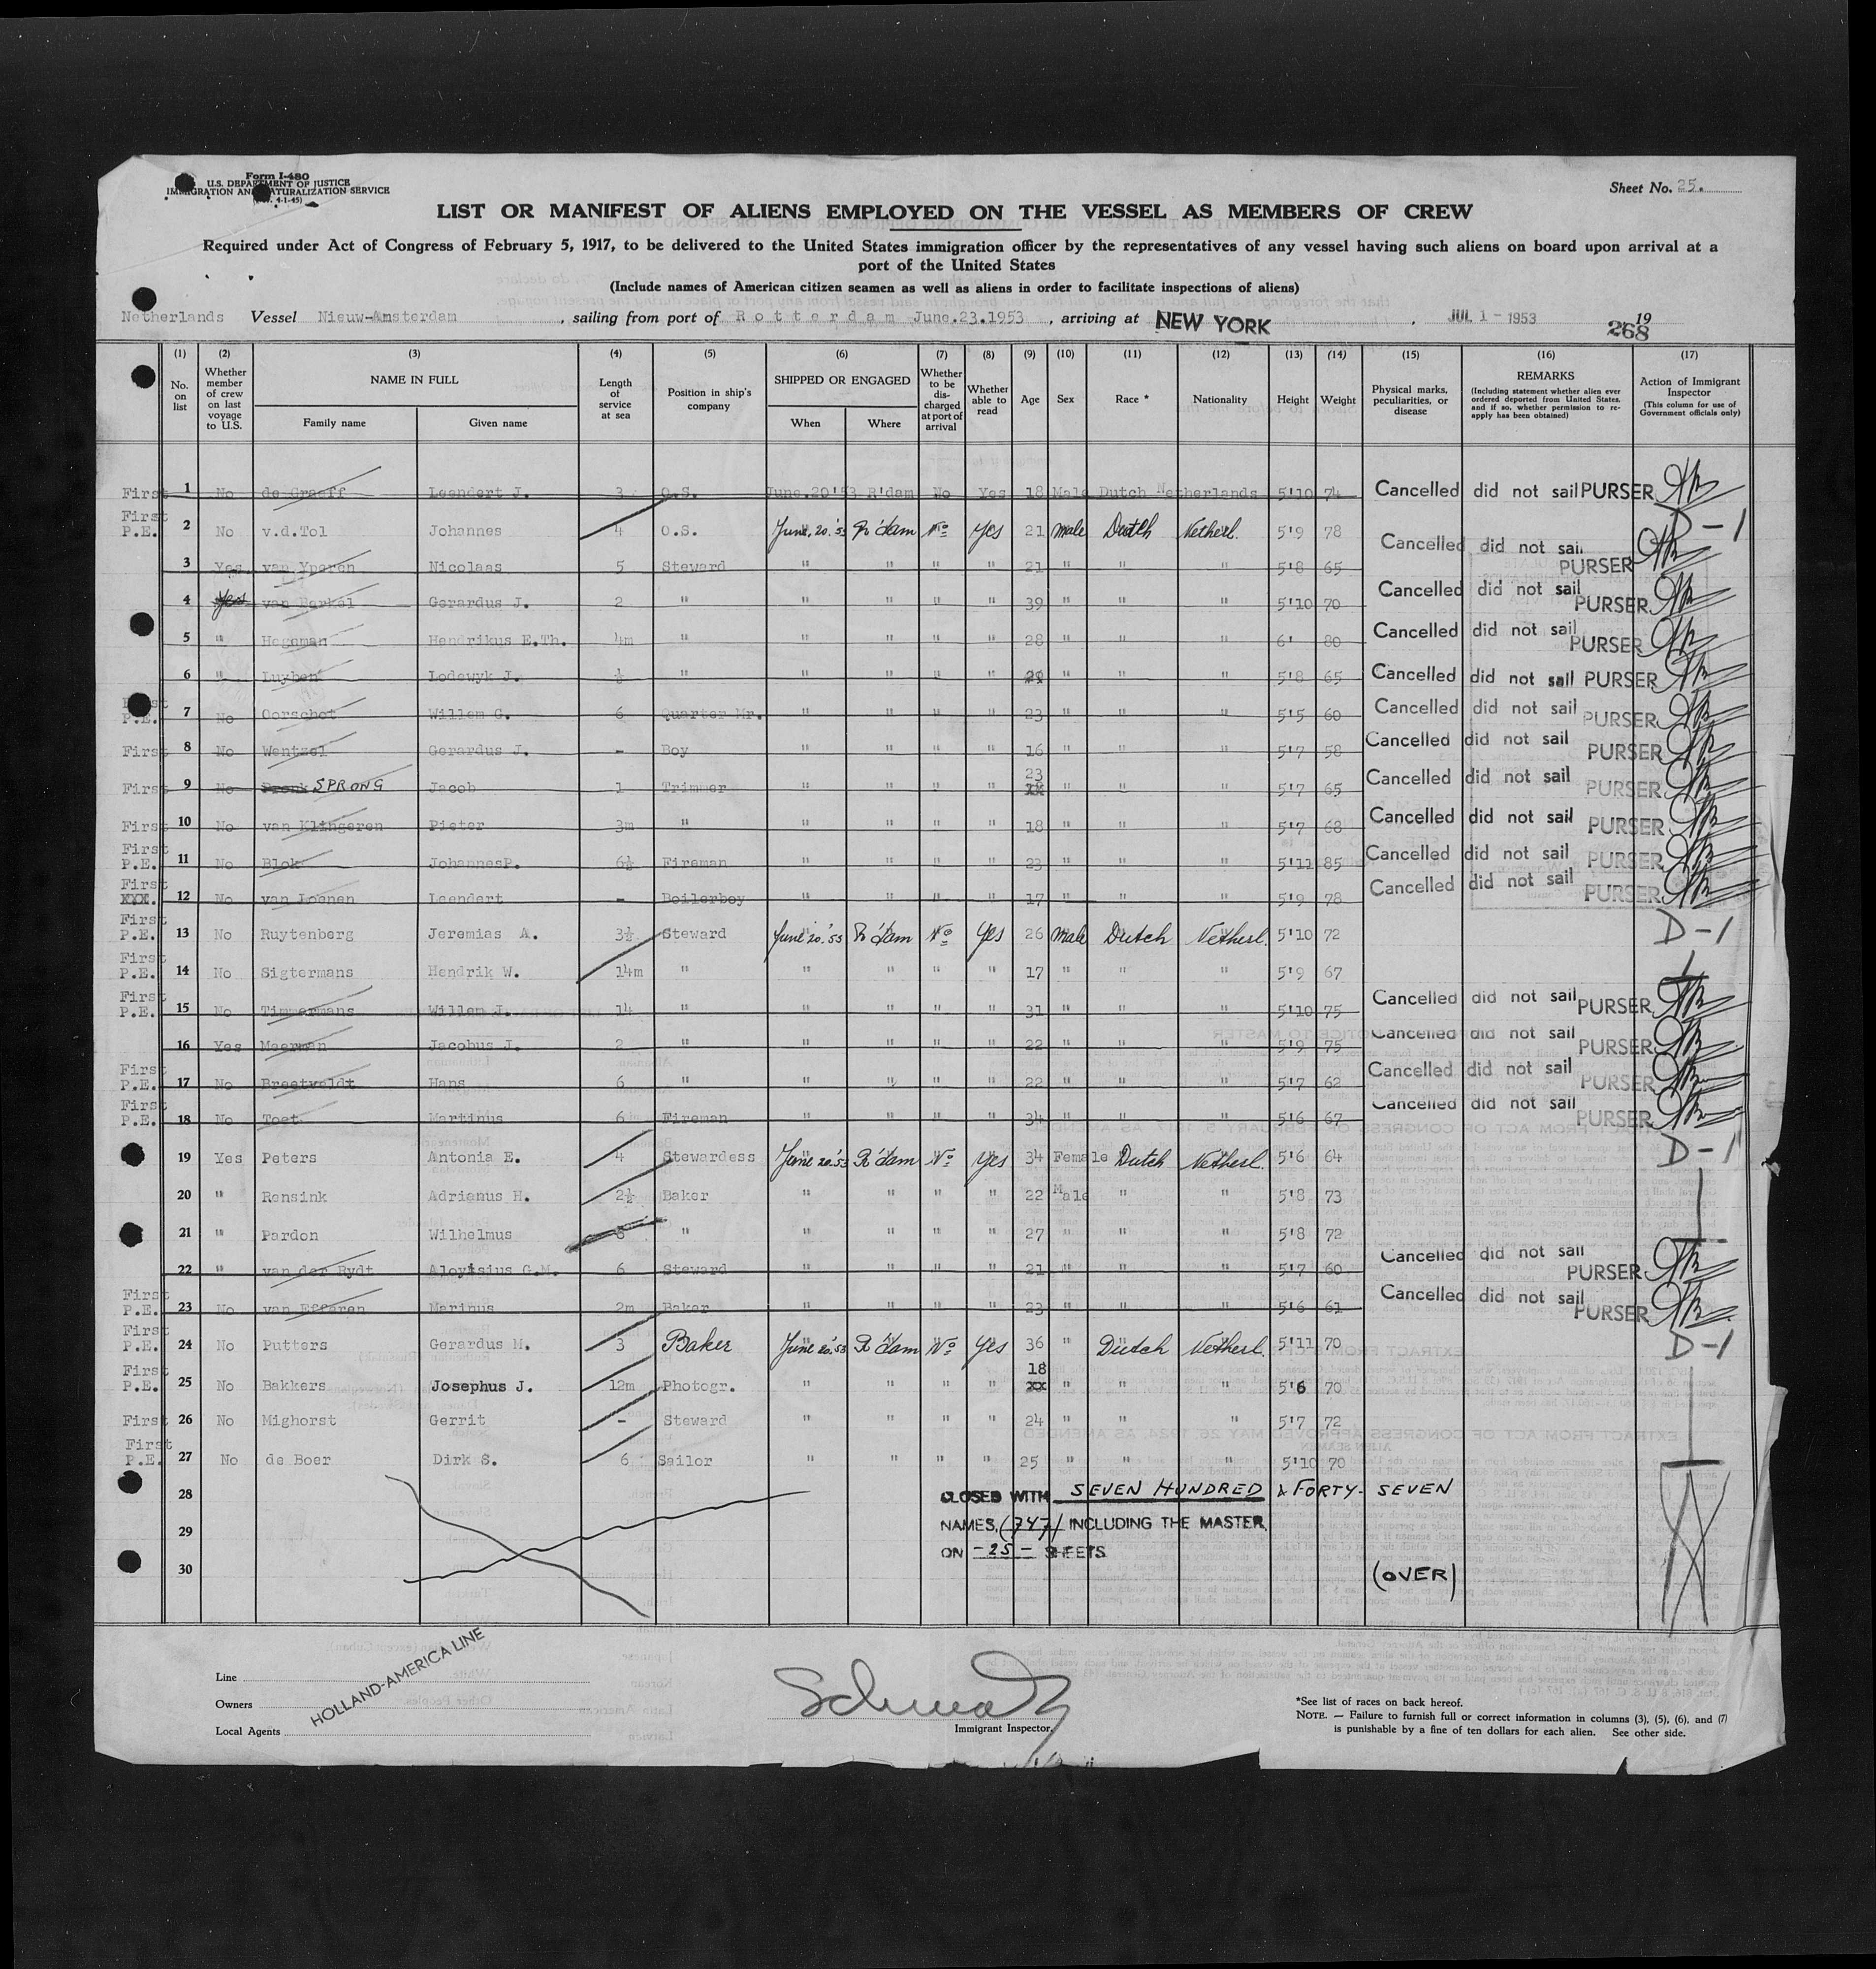 Form I-480
U.S. DEPARTMENT OF JUSTICE
IMMIGRATION AND NATURALIZATION SERVICE
4-1-45)
Sheet No. 25.
LIST OR MANIFEST OF ALIENS EMPLOYED ON THE VESSEL AS MEMBERS OF CREW
Required under Act of Congress of February 5, 1917, to be delivered to the United States immigration officer by the representatives of any vessel having such aliens on board upon arrival at a
port of the United States
(Include names of American citizen seamen as well as aliens in order to facilitate inspections of aliens)
Netherlands Vessel Nieuw-Amsterdam, sailing from port of Rotterdam June.23.1953, arriving at NEW YORK, JUL 1 - 1953 19
268
(1) (2) (3) (4) (5) (6) (7) (8) (9) (10) (11) (12) (13) (14) (15) (16) (17)
No. on list Whether member of crew on last voyage to U.S. NAME IN FULL Family name Given name Length of service at sea Position in ship's company SHIPPED OR ENGAGED When Where Whether to be discharged at port of arrival Whether able to read Age Sex Race * Nationality Height Weight Physical marks, peculiarities, or disease REMARKS (Including statement whether alien ever ordered deported from United States, and if so, whether permission to reapply has been obtained) Action of Immigrant Inspector (This column for use of Government officials only)
First 1 No de Graeff Leendert J. 3 O.S. June.20'53 R'dam No Yes 18 Male Dutch Netherlands 5'10 74 Cancelled did not sail PURSER
First P.E. 2 No v.d.Tol Johannes 4 O.S. June, 20.'53 R'dam No Yes 21 Male Dutch Netherl. 5'9 78 D-1
3 Yes van Yperen Nicolaas 5 Steward " " " " 21 " " " 5'8 65 Cancelled did not sail PURSER
4 Yes van Berkel Gerardus J. 2 " " " " " 39 " " " 5'10 70 Cancelled did not sail PURSER
5 " Hegeman Hendrikus E.Th. 4m " " " " " 28 " " " 6' 80 Cancelled did not sail PURSER
6 " Luyben Lodewyk J. ½ " " " " " " " " 5'8 65 Cancelled did not sail PURSER
P.E. 7 No Oorschot Willem G. 6 Quarter Mr. " " " " 23 " " " 5'5 60 Cancelled did not sail PURSER
First 8 No Wentzel Gerardus J. - Boy " " " " 16 " " " 5'7 58 Cancelled did not sail PURSER
First 9 No Pronk SPRONG Jacob 1 Trimmer " " " " 23 xx " " " 5'7 65 Cancelled did not sail PURSER
First 10 No van Klingeren Pieter 3m " " " " " 18 " " " 5'7 68 Cancelled did not sail PURSER
First P.E. 11 No Blok JohannesP. 6½ Fireman " " " " 23 " " " 5'11 85 Cancelled did not sail PURSER
First XXX. 12 No van Loenen Leendert - Boilerboy " " " " 17 " " " 5'9 78 Cancelled did not sail PURSER
First P.E. 13 No Ruytenberg Jeremias A. 3½ Steward June 20.'53 R'dam No Yes 26 Male Dutch Netherl. 5'10 72 D-1
First P.E. 14 No Sigtermans Hendrik W. 14m " " " " " 17 " " " 5'9 67
First P.E. 15 No Timmermans Willem J. 14 " " " " " 31 " " " 5'10 75 Cancelled did not sail PURSER
16 Yes Meerman Jacobus J. 2 " " " " " 22 " " " 5'9 75 Cancelled did not sail PURSER
First P.E. 17 No Breetveldt Hans 6 " " " " " 22 " " " 5'7 62 Cancelled did not sail PURSER
First P.E. 18 No Toet Martinus 6 Fireman " " " " 34 " " " 5'6 67 Cancelled did not sail PURSER
19 Yes Peters Antonia E. 4 Stewardess June 20.'53 R'dam No Yes 34 Female Dutch Netherl. 5'6 64 D-1
20 " Rensink Adrianus H. 2½ Baker " " " " 22 Male " " 5'8 73
21 " Pardon Wilhelmus 8 " " " " " 27 " " " 5'8 72
22 " van der Rydt Aloyisius G.M. 6 Steward " " " " 21 " " " 5'7 60 Cancelled did not sail PURSER
First P.E. 23 No van Efferen Marinus 2m Baker " " " " 23 " " " 5'6 61 Cancelled did not sail PURSER
First P.E. 24 No Putters Gerardus M. 3 Baker June 20.'53 R'dam No Yes 36 " Dutch Netherl. 5'11 70 D-1
First P.E. 25 No Bakkers Josephus J. 12m Photogr. " " " " 18 xx " " " 5'6 70
First 26 No Mighorst Gerrit - Steward " " " " 24 " " " 5'7 72
First P.E. 27 No de Boer Dirk S. 6 Sailor " " " " 25 " " " 5'10 70
28 CLOSED WITH SEVEN HUNDRED & FORTY-SEVEN
29 NAMES, (747) INCLUDING THE MASTER,
ON -25- SHEETS
30 (OVER)
Line
Owners
Local Agents
HOLLAND-AMERICA LINE
Immigrant Inspector.
*See list of races on back hereof.
NOTE. — Failure to furnish full or correct information in columns (3), (5), (6), and (7)
is punishable by a fine of ten dollars for each alien. See other side.